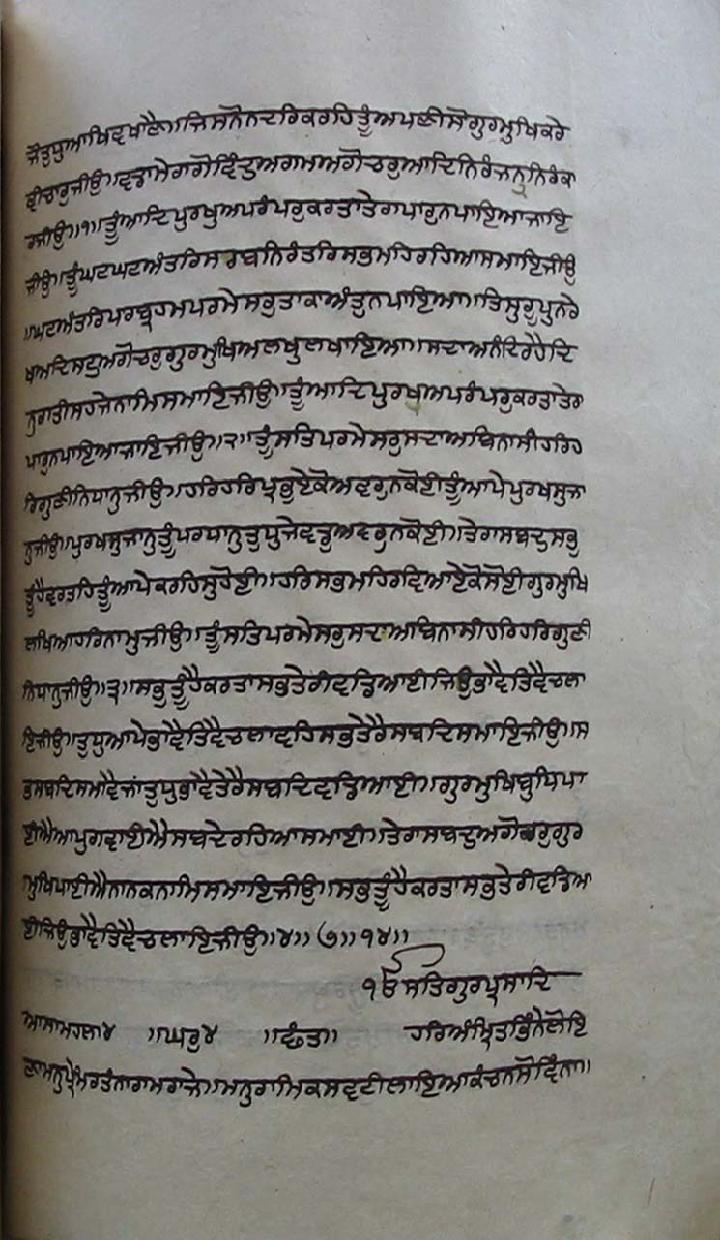 ਜੋਤੁਧੁਆਖਿਵਖਾਣੈ॥ਜਿਸਨੋਨਦਰਿਕਰਹਿਤੂੰਅਪਣੀਸੋਗੁਰਮੁਖਿਕਰੇ
ਵੀਚਾਰੁਜੀਉ॥ਵਡਾਮੇਰਾਗੋਵਿੰਦੁਅਗਮਅਗੋਚਰੁਆਦਿਨਿਰੰਜਨੁਨਿਰੰਕਾ
ਰਜੀਉ॥੧॥ਤੂੰਆਦਿਪੁਰਖੁਅਪਰੰਪਰੁਕਰਤਾਤੇਰਾਪਾਰੁਨਪਾਇਆਜਾਇ
ਜੀਉ॥ਤੂੰਘਟਘਟਅੰਤਰਿਸਰਬਨਿਰੰਤਰਿਸਭਮਹਿਰਹਿਆਸਮਾਇਜੀਉ
॥ਘਟਅੰਤਰਿਪਰਬ੍ਰਹਮਪਰਮੇਸਰੁਤਾਕਾਅੰਤੁਨਪਾਇਆ॥ਤਿਸੁਰੂਪੁਨਰੇ
ਖਅਦਿਸਟੁਅਗੋਚਰੁਗੁਰਮੁਖਿਅਲਖੁਲਖਾਇਆ॥ਸਦਾਅਨੰਦਿਰਹੈਦਿ
ਨੁਰਾਤੀਸਹਜੇਨਾਮਿਸਮਾਇਜੀਉ॥ਤੂੰਆਦਿਪੁਰਖੁਅਪਰੰਪਰੁਕਰਤਾਤੇਰਾ
ਪਾਰੁਨਪਾਇਆਜਾਇਜੀਉ॥੨॥ਤੂੰਸਤਿਪਰਮੇਸਰੁਸਦਾਅਬਿਨਾਸੀਹਰਿਹ
ਰਿਗੁਣੀਨਿਧਾਨੁਜੀਉ॥ਹਰਿਹਰਿਪ੍ਰਭੁਏਕੋਅਵਰੁਨਕੋਈਤੂੰਆਪੇਪੁਰਖੁਸੁਜਾ
ਨੁਜੀਉ॥ਪੁਰਖੁਸੁਜਾਨੁਤੂੰਪਰਧਾਨੁਤੁਧੁਜੇਵਡੁਅਵਰੁਨਕੋਈ॥ਤੇਰਾਸਬਦੁਸਭੁ
ਤੂੰਹੈਵਰਤਹਿਤੂੰਆਪੇਕਰਹਿਸੁਹੋਈ॥ਹਰਿਸਭਮਹਿਰਵਿਆਏਕੋਸੋਈਗੁਰਮੁਖਿ
ਲਖਿਆਹਰਿਨਾਮੁਜੀਉ॥ਤੂੰਸਤਿਪਰਮੇਸਰੁਸਦਾਅਬਿਨਾਸੀਹਰਿਹਰਿਗੁਣੀ
ਨਿਧਾਨੁਜੀਉ॥੩॥ਸਭੁਤੂੰਹੈਕਰਤਾਸਭਤੇਰੀਵਡਿਆਈਜਿਉਭਾਵੈਤਿਵੈਚਲਾ
ਇਜੀਉ॥ਤੁਧੁਆਪੇਭਾਵੈਤਿਵੈਚਲਾਵਹਿਸਭਤੇਰੈਸਬਦਿਸਮਾਇਜੀਉ॥ਸ
ਭਸਬਦਿਸਮਾਵੈਜਾਂਤੁਧੁਭਾਵੈਤੇਰੈਸਬਦਿਵਡਿਆਈ॥ਗੁਰਮੁਖਿਬੁਧਿਪਾ
ਈਐਆਪੁਗਵਾਈਐਸਬਦੇਰਹਿਆਸਮਾਈ॥ਤੇਰਾਸਬਦੁਅਗੋਚਰੁਗੁਰ
ਮੁਖਿਪਾਈਐਨਾਨਕਨਾਮਿਸਮਾਇਜੀਉ॥ਸਭੁਤੂੰਹੈਕਰਤਾਸਭਤੇਰੀਵਡਿਆ
ਈਜਿਉਭਾਵੈਤਿਵੈਚਲਾਇਜੀਉ॥੪॥੭॥੧੪॥
ੴਸਤਿਗੁਰਪ੍ਰਸਾਦਿ
ਆਸਾਮਹਲਾ੪ ॥ਘਰੁ੪ ॥ਛੰਤ॥ ਹਰਿਅੰਮ੍ਰਿਤਭਿੰਨੇਲੋਇ
ਣਾਮਨੁਪ੍ਰੇਮਰਤੰਨਾਰਾਮਰਾਜੇ॥ਮਨੁਰਾਮਿਕਸਵਟੀਲਾਇਆਕੰਚਨਸੋਵਿੰਨਾ॥